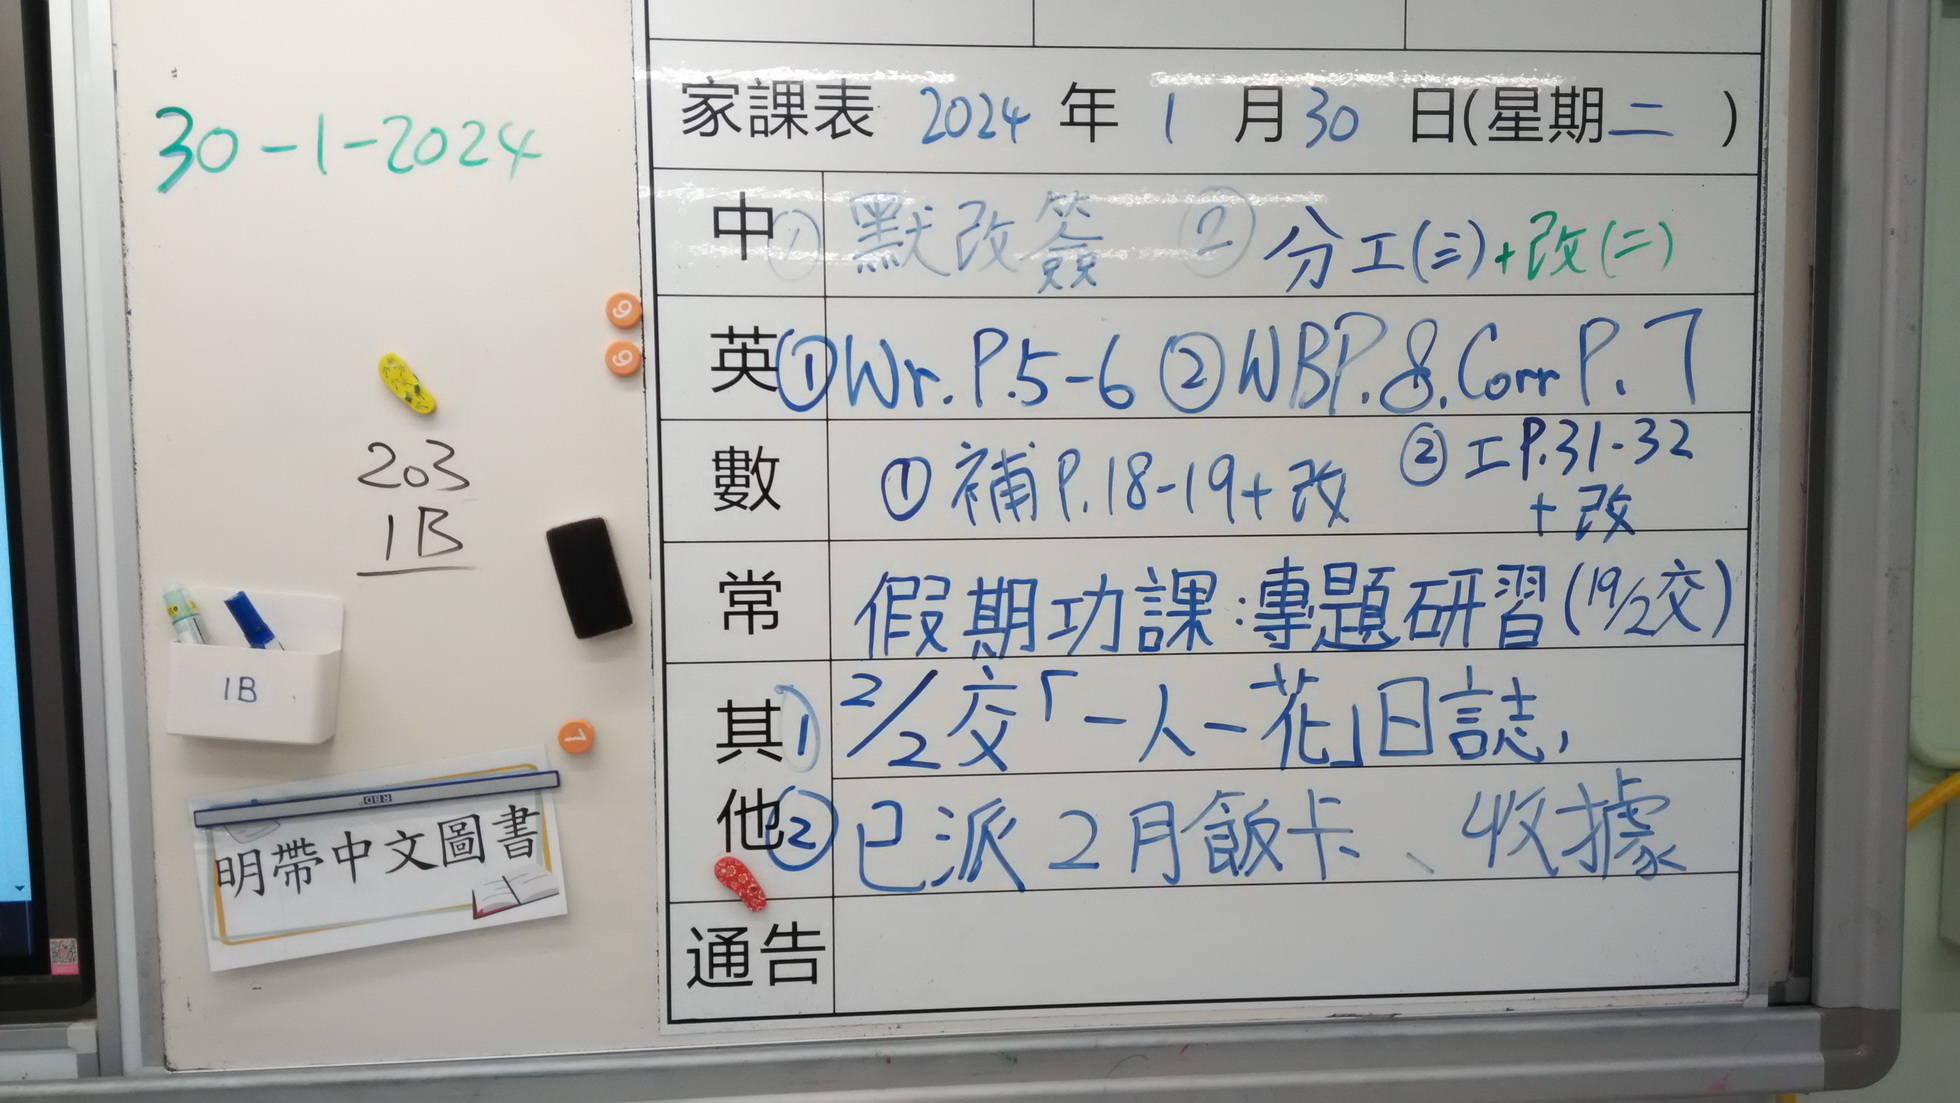 30-1-2024
203
1B
1B
明帶中文圖書
家課表 2024 年 1 月 30 日(星期二)
中 ① 默改簽 ② 分工(三)+改(二)
英 ① Wr. P.5-6 ② WB P.8. Corr P.7
數 ① 補 P.18-19+改 ② 工 P.31-32
+改
常 假期功課:專題研習(19/2交)
其 ① 2/2交「一人一花」日誌,
他 ② 已派2月飯卡、收據
通告
9
9
7